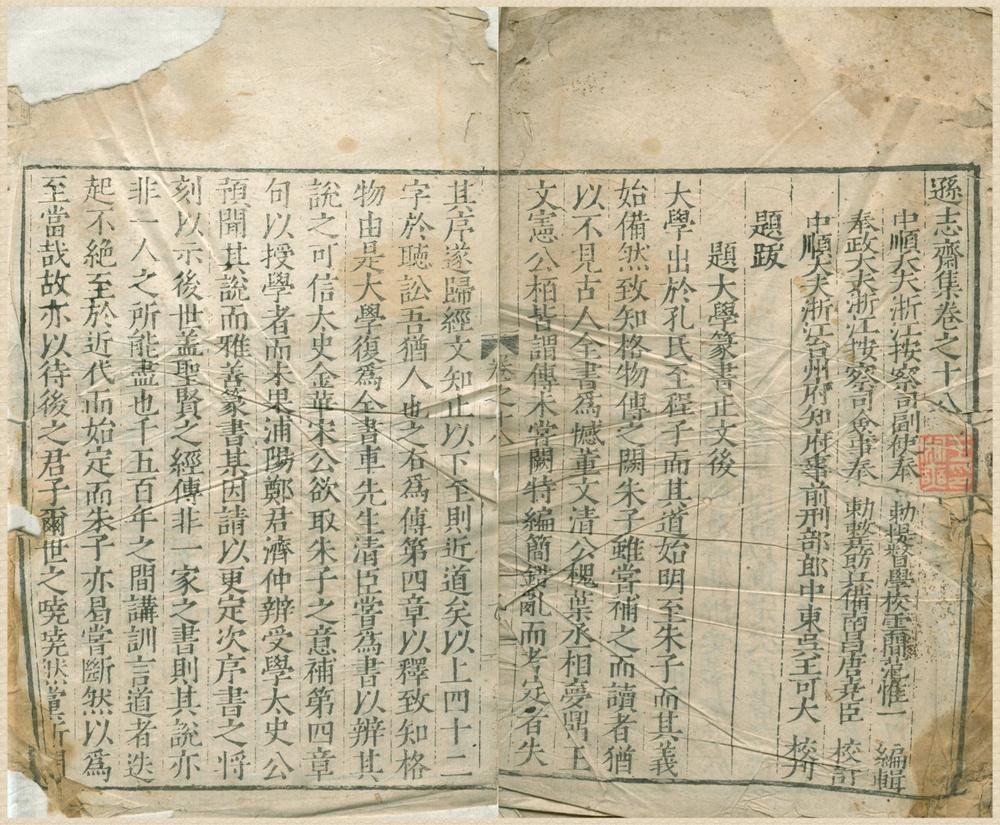 遜志齋集卷之十八
中順大夫浙江按察司副使奉 勅提督學校雲間范惟一 編輯
奉政大夫浙江按察司僉事奉 勅整飭兵備南昌唐堯臣 校訂
中順大夫浙江台州府知府事前刑部郎中東吳王可大 校刋
題跋
題大學篆書正文後
大學出於孔氏至程子而其道始明至朱子而其義
始備然致知格物傳之闕朱子雖嘗補之而讀者猶
以不見古人全書為憾董文清公槐葉丞相夢鼎王
文憲公栢皆謂傳未嘗闕特編簡錯亂而考定者失
卷之十八
其序遂歸經文知止以下至則近道矣以上四十二
字於聽訟吾猶人也之右為傳第四章以釋致知格
物由是大學復為全書車先生清臣嘗為書以辨其
說之可信太史金華宋公欲取朱子之意補第四章
句以授學者而未果浦陽鄭君濟仲辨受學太史公
預聞其說而雅善篆書某因請以更定次序書之將
刻以示後世盖聖賢之經傳非一家之書則其說亦
非一人之所能盡也千五百年之間講訓言道者迭
起不絕至於近代而始定而朱子亦曷嘗斷然以為
至當哉故亦以待後之君子爾世之嘵嘵然黨所聞